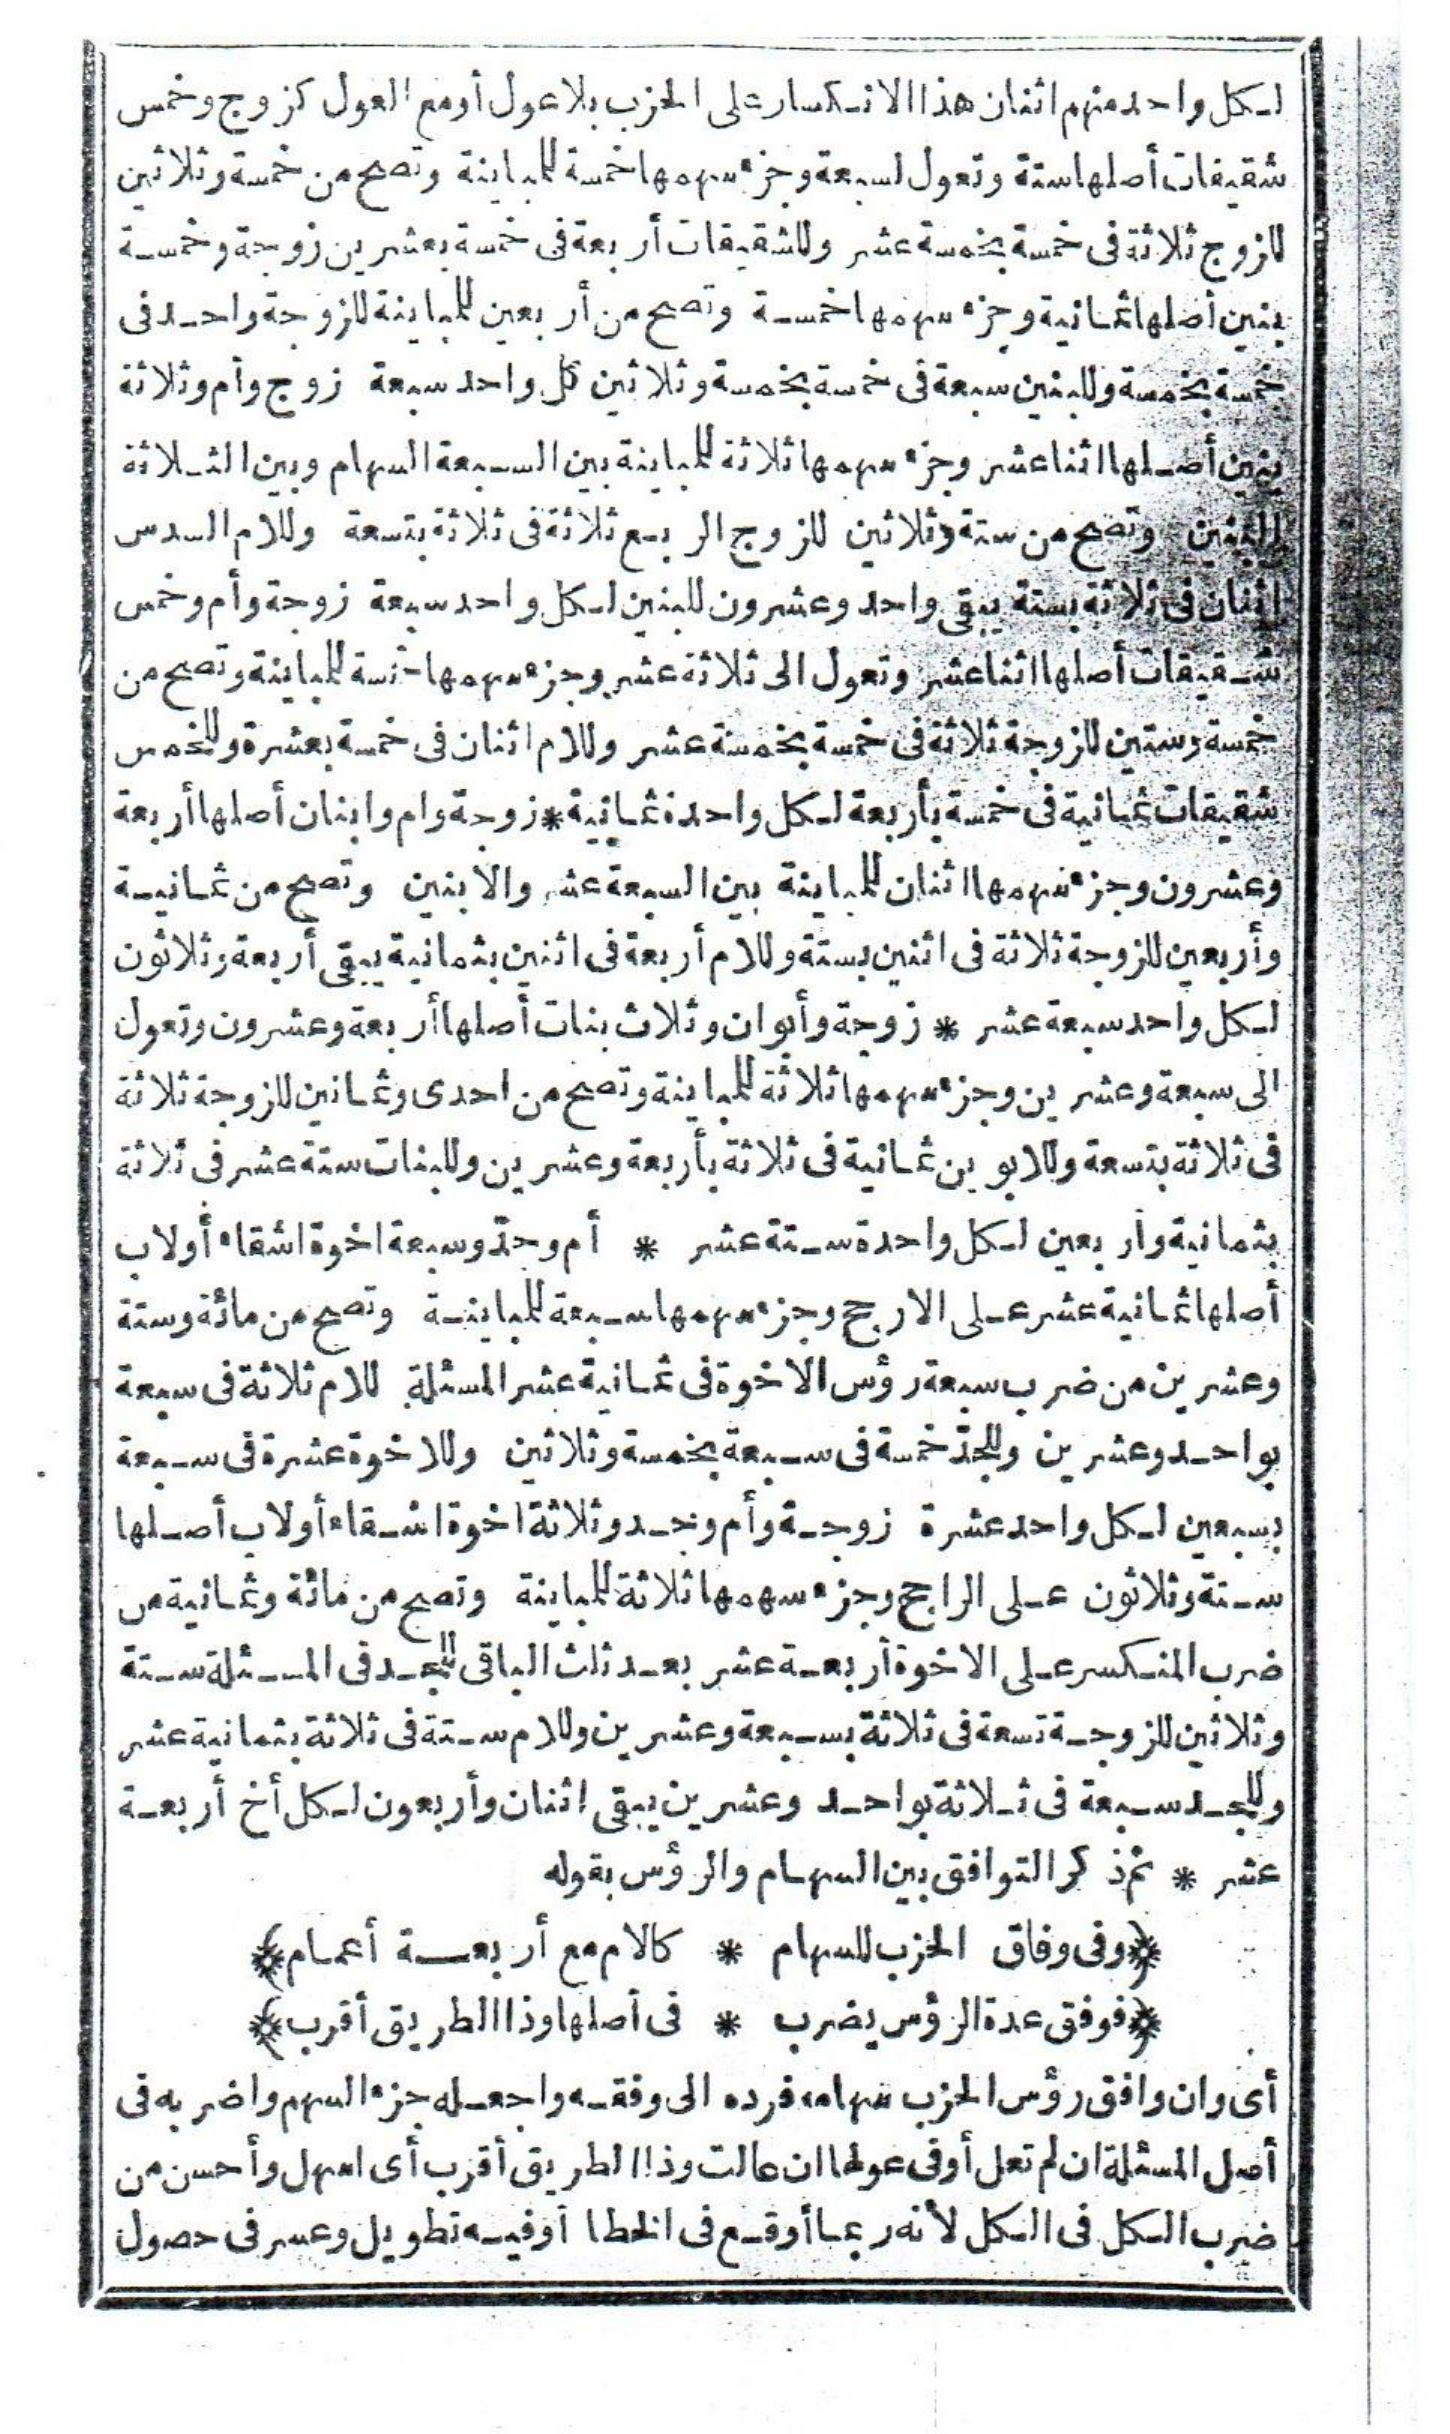 لكل واحد منهم اثنان هذا الانكسار على الحزب بلا عول أو مع العول كزوج وخمس
شقيقات أصلها ستة وتعول لسبعة وجزء سهمها خمسة للمباينة وتصح من خمسة وثلاثين
للزوج ثلاثة فى خمسة بخمسة عشر وللشقيقات أربعة فى خمسة بعشرين زوجة وخمسة
بنين أصلها ثمانية وجزء سهمها خمسة وتصح من أربعين للمباينة للزوجة واحد فى
خمسة بخمسة وللبنين سبعة فى خمسة بخمسة وثلاثين كل واحد سبعة زوج وأم وثلاثة
بنين أصلها اثنا عشر وجزء سهمها ثلاثة للمباينة بين السبعة السهام وبين الثلاثة
البنين وتصح من ستة وثلاثين للزوج الربع ثلاثة فى ثلاثة بتسعة وللام السدس
اثنان فى ثلاثة بستة يبقى واحد وعشرون للبنين لكل واحد سبعة زوجة وأم وخمس
شقيقات أصلها اثنا عشر وتعول الى ثلاثة عشر وجزء سهمها خمسة للمباينة وتصح من
خمسة وستين للزوجة ثلاثة فى خمسة بخمسة عشر وللام اثنان فى خمسة بعشرة وللخمس
شقيقات ثمانية فى خمسة بأربعة لكل واحدة ثمانية * زوجة وام وابنان أصلها أربعة
وعشرون وجزء سهمها اثنان للمباينة بين السبعة عشر والابنين وتصح من ثمانية
وأربعين للزوجة ثلاثة فى اثنين بستة وللام أربعة فى اثنين بثمانية يبقى أربعة وثلاثون
لكل واحد سبعة عشر * زوجة وأبوان وثلاث بنات أصلها أربعة وعشرون وتعول
الى سبعة وعشرين وجزء سهمها ثلاثة للمباينة وتصح من احدى وثمانين للزوجة ثلاثة
فى ثلاثة بتسعة وللابوين ثمانية فى ثلاثة بأربعة وعشرين وللبنات ستة عشر فى ثلاثة
بثمانية وأربعين لكل واحدة ستة عشر * أم وجدّ وسبعة اخوة اشقاء أولاب
أصلها ثمانية عشر على الارجح وجزء سهمها سبعة للمباينة وتصح من مائة وستة
وعشرين من ضرب سبعة رؤس الاخوة فى ثمانية عشر المسئلة للام ثلاثة فى سبعة
بواحد وعشرين وللجدّ خمسة فى سبعة بخمسة وثلاثين وللاخوة عشرة فى سبعة
بسبعين لكل واحد عشرة زوجة وأم وجد وثلاثة اخوة اشقاء أولاب أصلها
ستة وثلاثون على الراجح وجزء سهمها ثلاثة للمباينة وتصح من مائة وثمانية من
ضرب المنكسر على الاخوة أربعة عشر بعد ثلث الباقى للجد فى المسئلة ستة
وثلاثين للزوجة تسعة فى ثلاثة بسبعة وعشرين وللام ستة فى ثلاثة بثمانية عشر
وللجد سبعة فى ثلاثة بواحد وعشرين يبقى اثنان وأربعون لكل أخ أربعة
عشر * ثم ذكر التوافق بين السهام والرؤس بقوله
﴿وفى وفاق الحزب للسهام * كالام مع أربعة أعمام﴾
﴿فوفق عدة الرؤس يضرب * فى أصلها وذا الطريق أقرب﴾
أى وان وافق رؤس الحزب سهامه فرده الى وفقه واجعله جزء السهم واضربه فى
أصل المسئلة ان لم تعل أوفى عولها ان عالت وذا الطريق أقرب أى اسهل وأحسن من
ضرب الكل فى الكل لأنه ربما أوقع فى الخطا أو فيه تطويل وعسر فى حصول